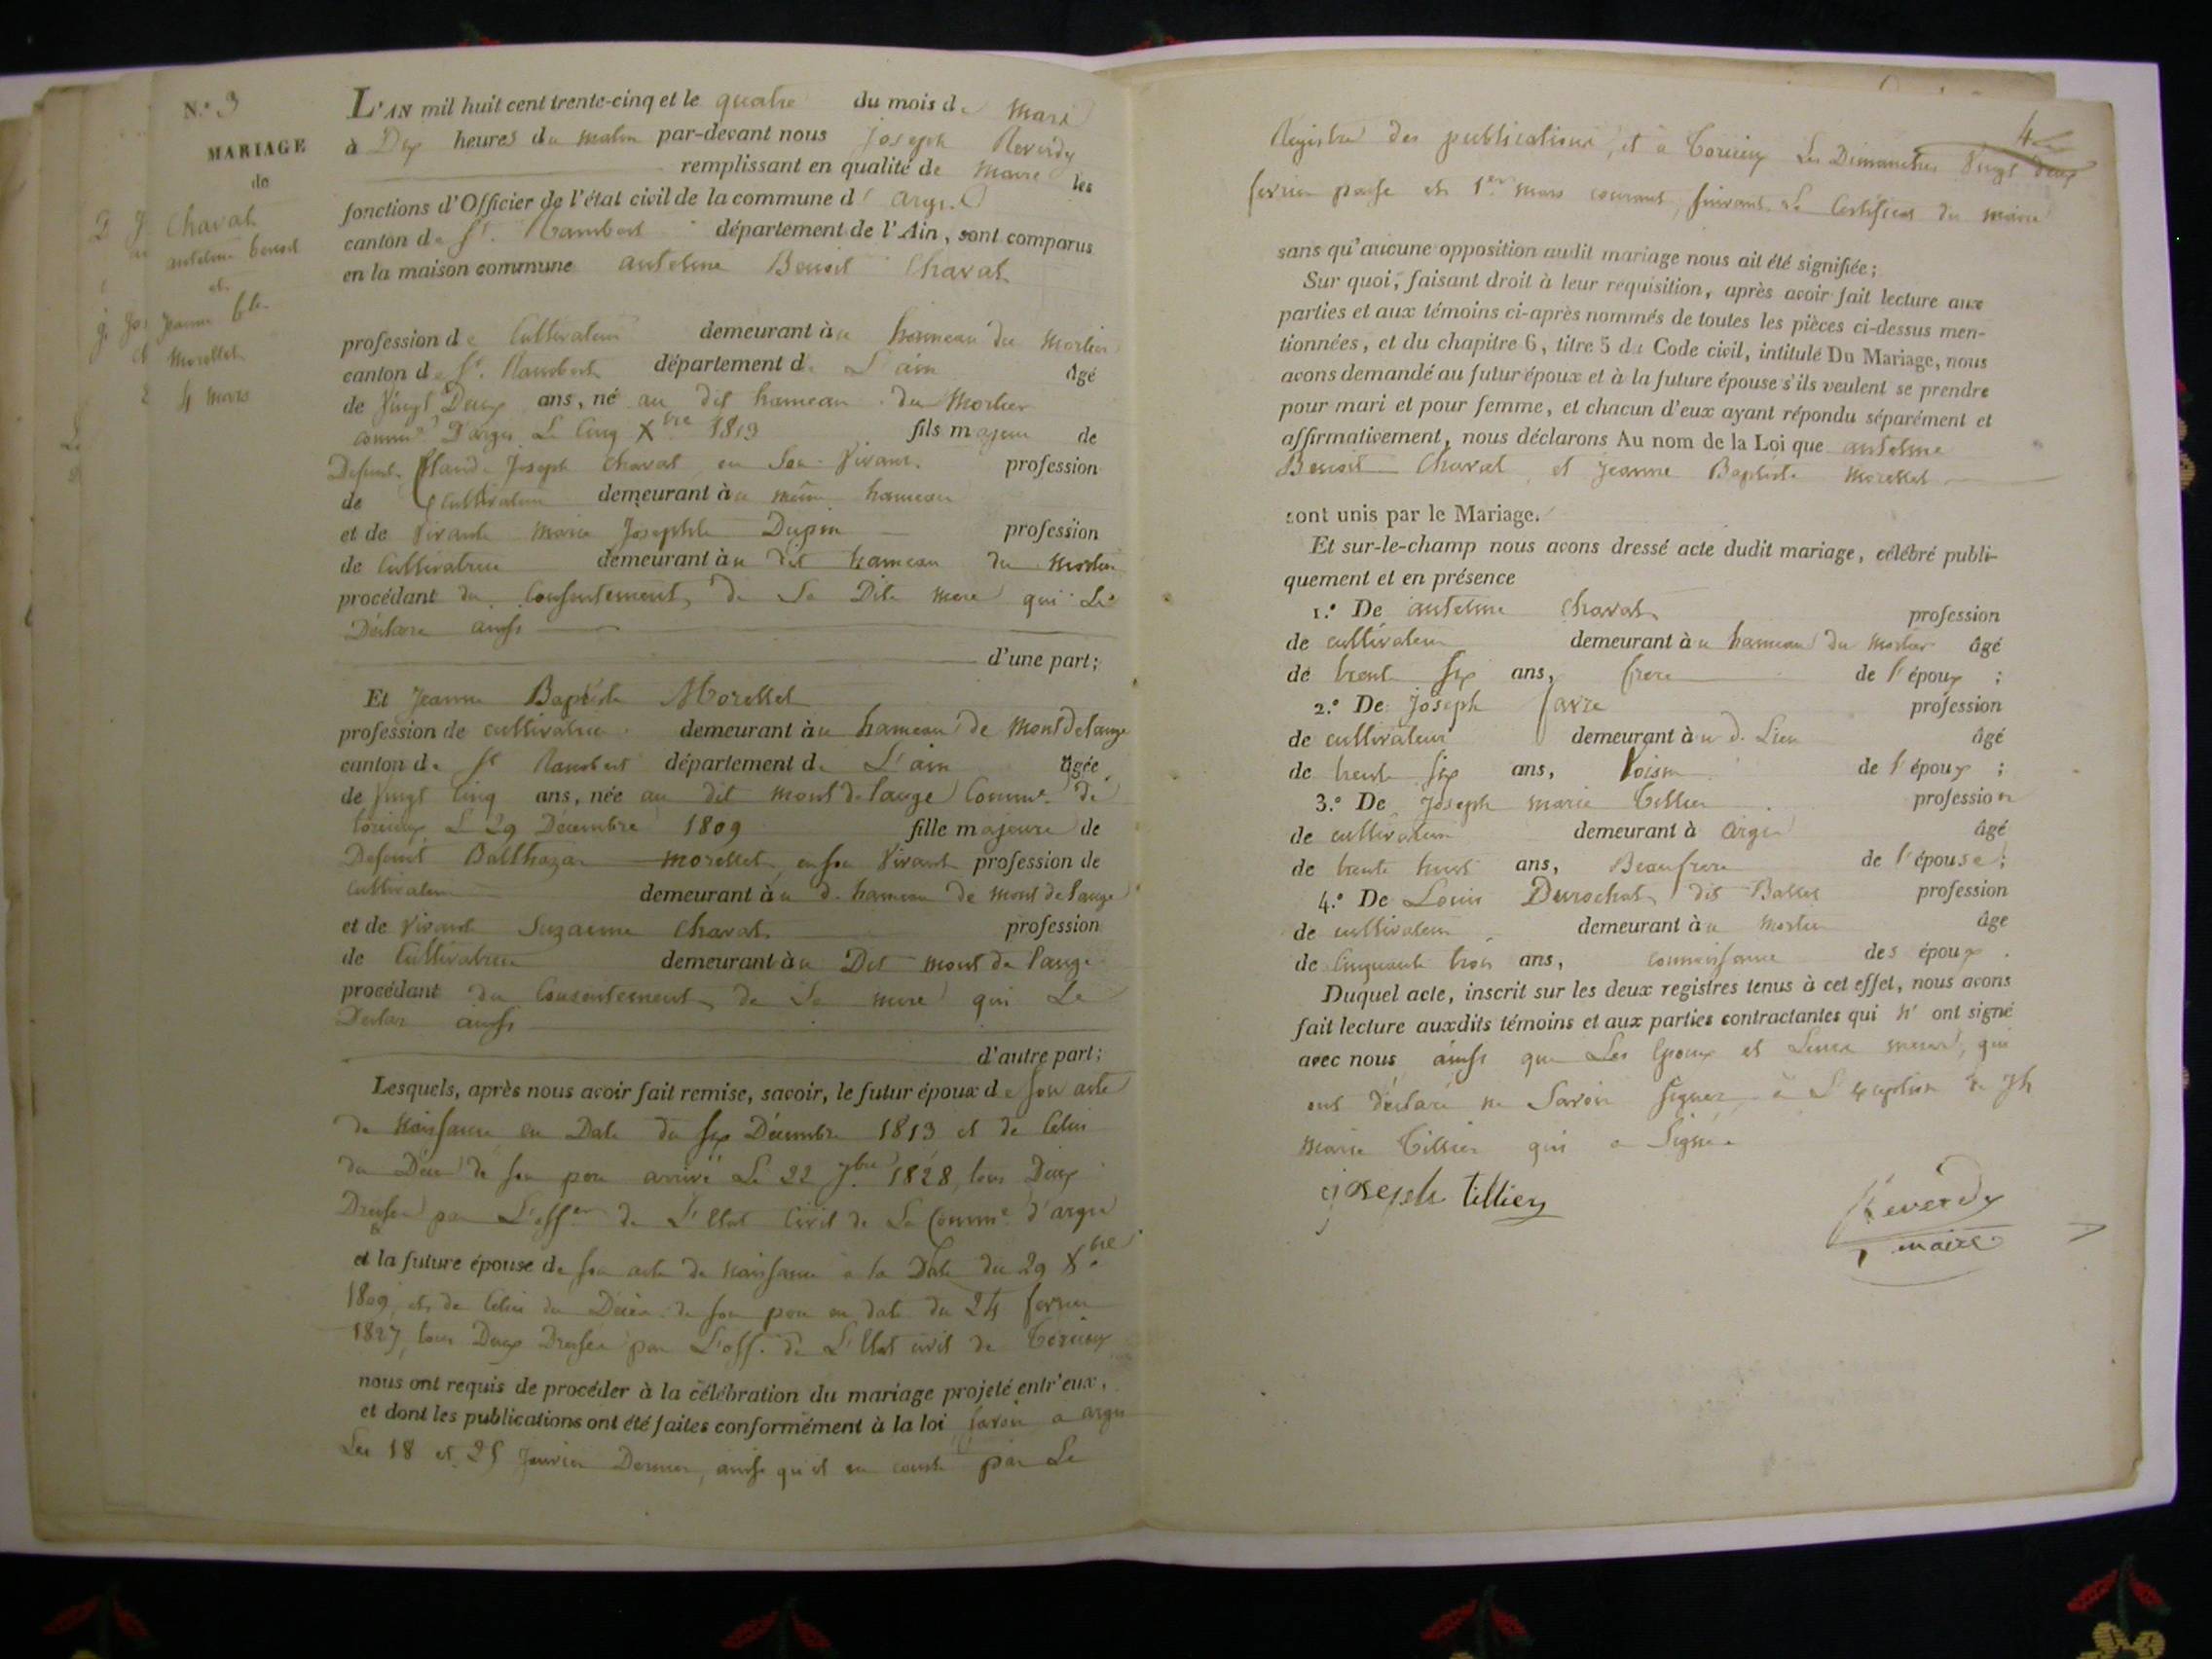 N.º 3
MARIAGE
de
Chavat
antelme benoit
et
Jeanne bte
Morellet
4 mars
L'AN mil huit cent trente-cinq et le quatre du mois de mars
à Dix heures du matin par-devant nous Joseph Reverdy
remplissant en qualité de maire les
fonctions d'Officier de l'état civil de la commune d'argis
canton de St. Rambert département de l'Ain, sont comparus
en la maison commune antelme Benoit Chavat
profession de Cultivateur demeurant au hameau du mortier
canton de St. Rambert département de L'ain âgé
de vingt Deux ans, né au dit hameau du Mortier
comme D'argis Le Cinq Xbre 1813 fils majeur de
Defunt Claude Joseph Chavat en Son vivant profession
de Cultivateur demeurant au même hameau
et de vivante marie Josephte Dupin profession
de Cultivatrice demeurant au dit hameau du mortier
procédant du Consentement de Sa Dite mere qui Le
Déclare ainsi
d'une part;
Et Jeanne Baptiste Morellet
profession de cultivatrice demeurant au hameau de montdelange
canton de St Rambert département de L'ain âgée
de vingt Cinq ans, née au dit mont de lange Comme. de
torcieux L 29 Décembre 1809 fille majeure de
Defunt Balthazar morellet en son vivant profession de
Cultivateur demeurant au d. hameau de mont de lange
et de vivante Suzanne Chavat profession
de Cultivatrice demeurant au Dit mont de lange
procédant du Consentement de Sa mere qui Le
Declare ainsi
d'autre part;
Lesquels, après nous avoir fait remise, savoir, le futur époux de son acte
de Naissance en Date du six Décembre 1813 et de Celui
du Décès de son pere arrivé Le 22 7bre 1828, tous Deux
Dressés par L'offer de L'Etat Civil de La Comme d'argis
et la future épouse de son acte de Naissance à la Date du 29 Xbre
1809, et de Celui du Décès de son pere en date du 24 fevrier
1827, tous Deux Dressés par L'off. de L'Etat civil de torcieux
nous ont requis de procéder à la célébration du mariage projeté entr'eux,
et dont les publications ont été faites conformément à la loi savoir a argis
Les 18 et 25 Janvier Dernier, ainsi qu'il en conste par Le
4
Registre des publications, et a torcieux Les Dimanches Vingt Deux
fevrier passé et 1er mars courant, suivant Le Certificat du maire
sans qu'aucune opposition audit mariage nous ait été signifiée;
Sur quoi, faisant droit à leur requisition, après avoir fait lecture aux
parties et aux témoins ci-après nommés de toutes les pièces ci-dessus men-
tionnées, et du chapitre 6, titre 5 du Code civil, intitulé Du Mariage, nous
avons demandé au futur époux et à la future épouse s'ils veulent se prendre
pour mari et pour femme, et chacun d'eux ayant répondu séparément et
affirmativement, nous déclarons Au nom de la Loi que antelme
Benoit Chavat et Jeanne Baptiste morellet
sont unis par le Mariage.
Et sur-le-champ nous avons dressé acte dudit mariage, célébré publi-
quement et en présence
1.º De antelme Chavat profession
de cultivateur demeurant au hameau du mortier âgé
de trente six ans, frere de l'époux ;
2.º De Joseph favre profession
de cultivateur demeurant au d. Lieu âgé
de trente six ans, Voisin de l'époux ;
3.º De Joseph marie tillier profession
de cultivateur demeurant à argis âgé
de trente huit ans, Beaufrere de l'épouse ;
4.º De Louis Durochat dit Ballet profession
de cultivateur demeurant au mortier âgé
de Cinquante trois ans, connaissance des époux .
Duquel acte, inscrit sur les deux registres tenus à cet effet, nous avons
fait lecture auxdits témoins et aux parties contractantes qui n'ont signé
avec nous ainsi que Les Epoux et Leurs meres, qui
ont déclaré ne Savoir signer, à L'exception de Jh
Marie tillier qui a Signé
joseph tillier
Reverdy
maire